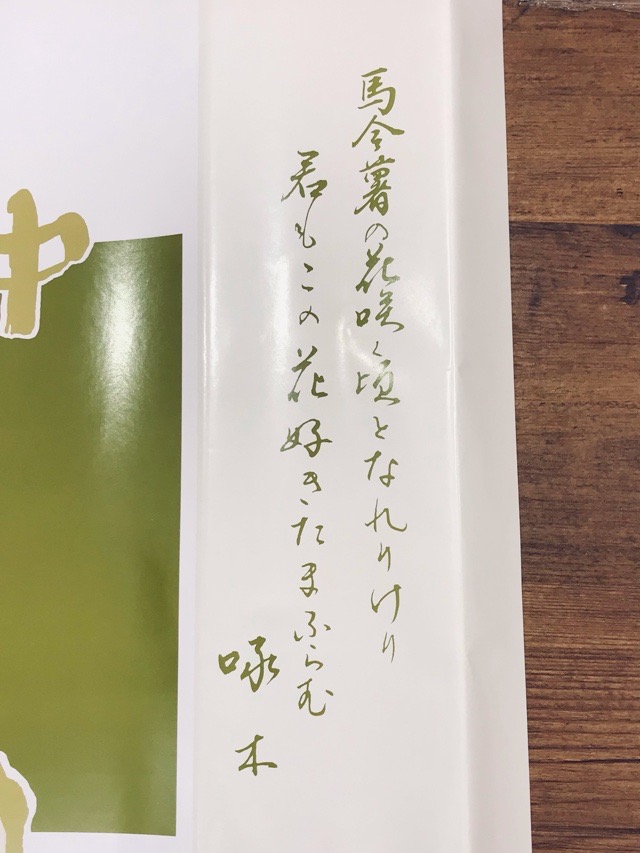 馬令薯の花咲く頃となれりけり
君もこの花好きたまふらむ
啄木